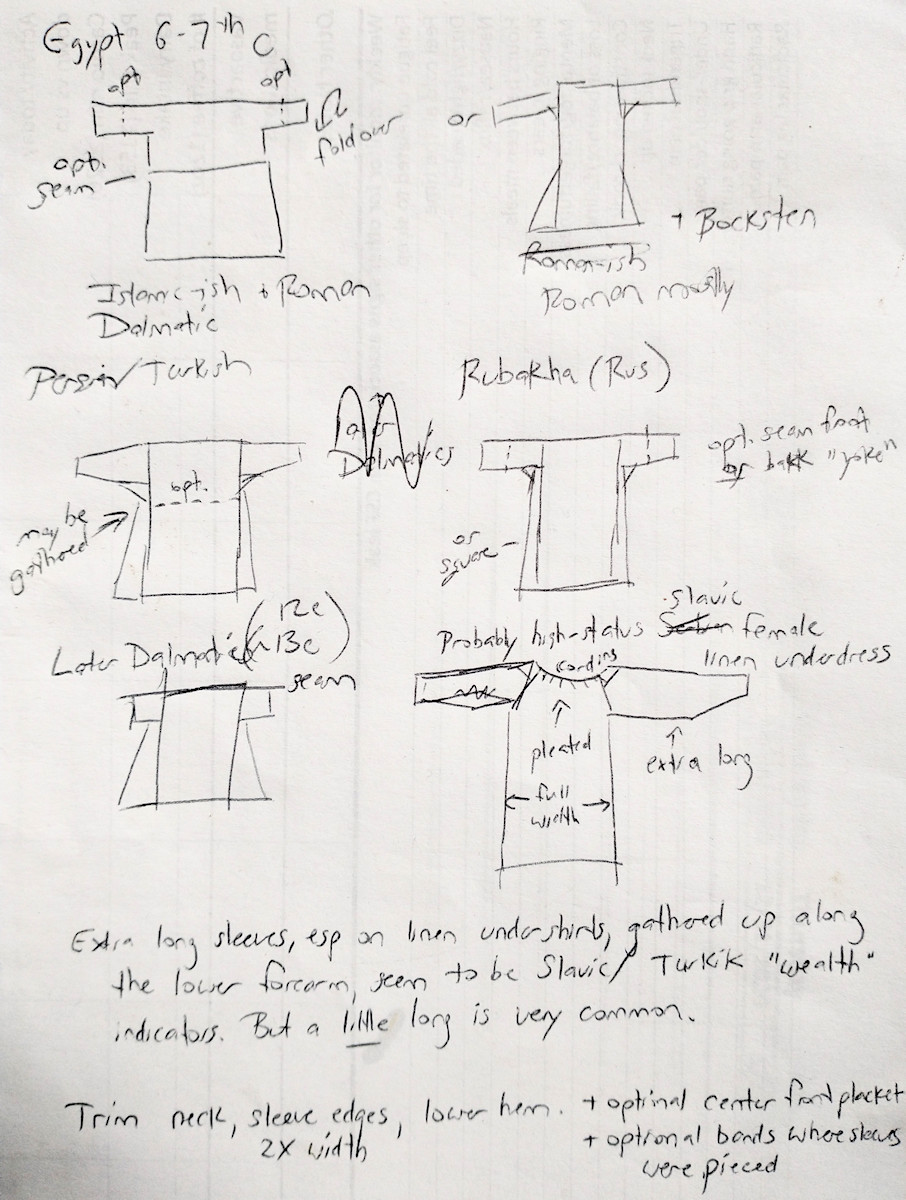 Egypt 6-7th C
opt
opt
foldover
opt.
seam
Islamic-ish + Roman
Dalmatic
or
+ Bocksten
Roman-ish
Roman mostly
Persian/Turkish
opt.
may be
gathered
Later
Dalmatics
Rubakha (Rus)
opt. seam front
or back "yoke"
or
square
Later Dalmatic (12c
13c)
seam
Probably high-status slavic female
linen underdress
cording
pleated
extra long
full
width
Extra long sleeves, esp on linen undershirts, gathered up along
the lower forearm, seem to be Slavic/Turkik "wealth"
indicators. But a little long is very common.
Trim neck, sleeve edges, lower hem.
2X width
+ optinal center front placket
+ optional bands where sleeves
were pieced